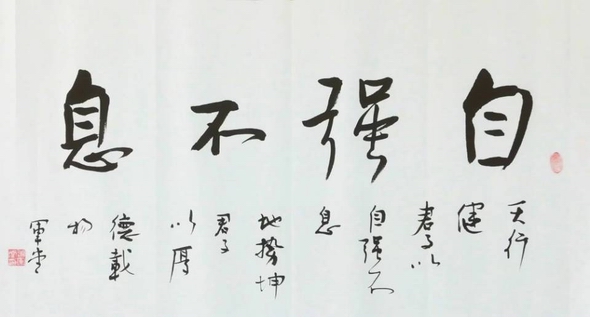 自强不息
天行
健
君子以
自强不
息
地勢坤
君子
以厚
德載
物